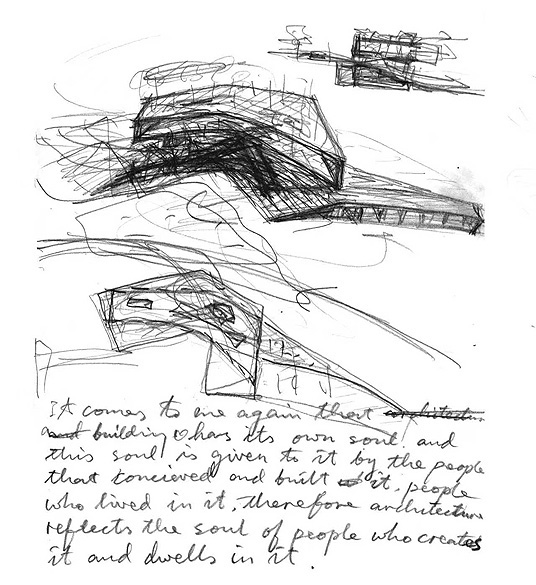 It comes to me again that architectur
and building has its own soul and
this soul is given to it by the people
that concieved and built it. people
who lived in it, therefore architecture
reflects the soul of people who creates
it and dwells in it.